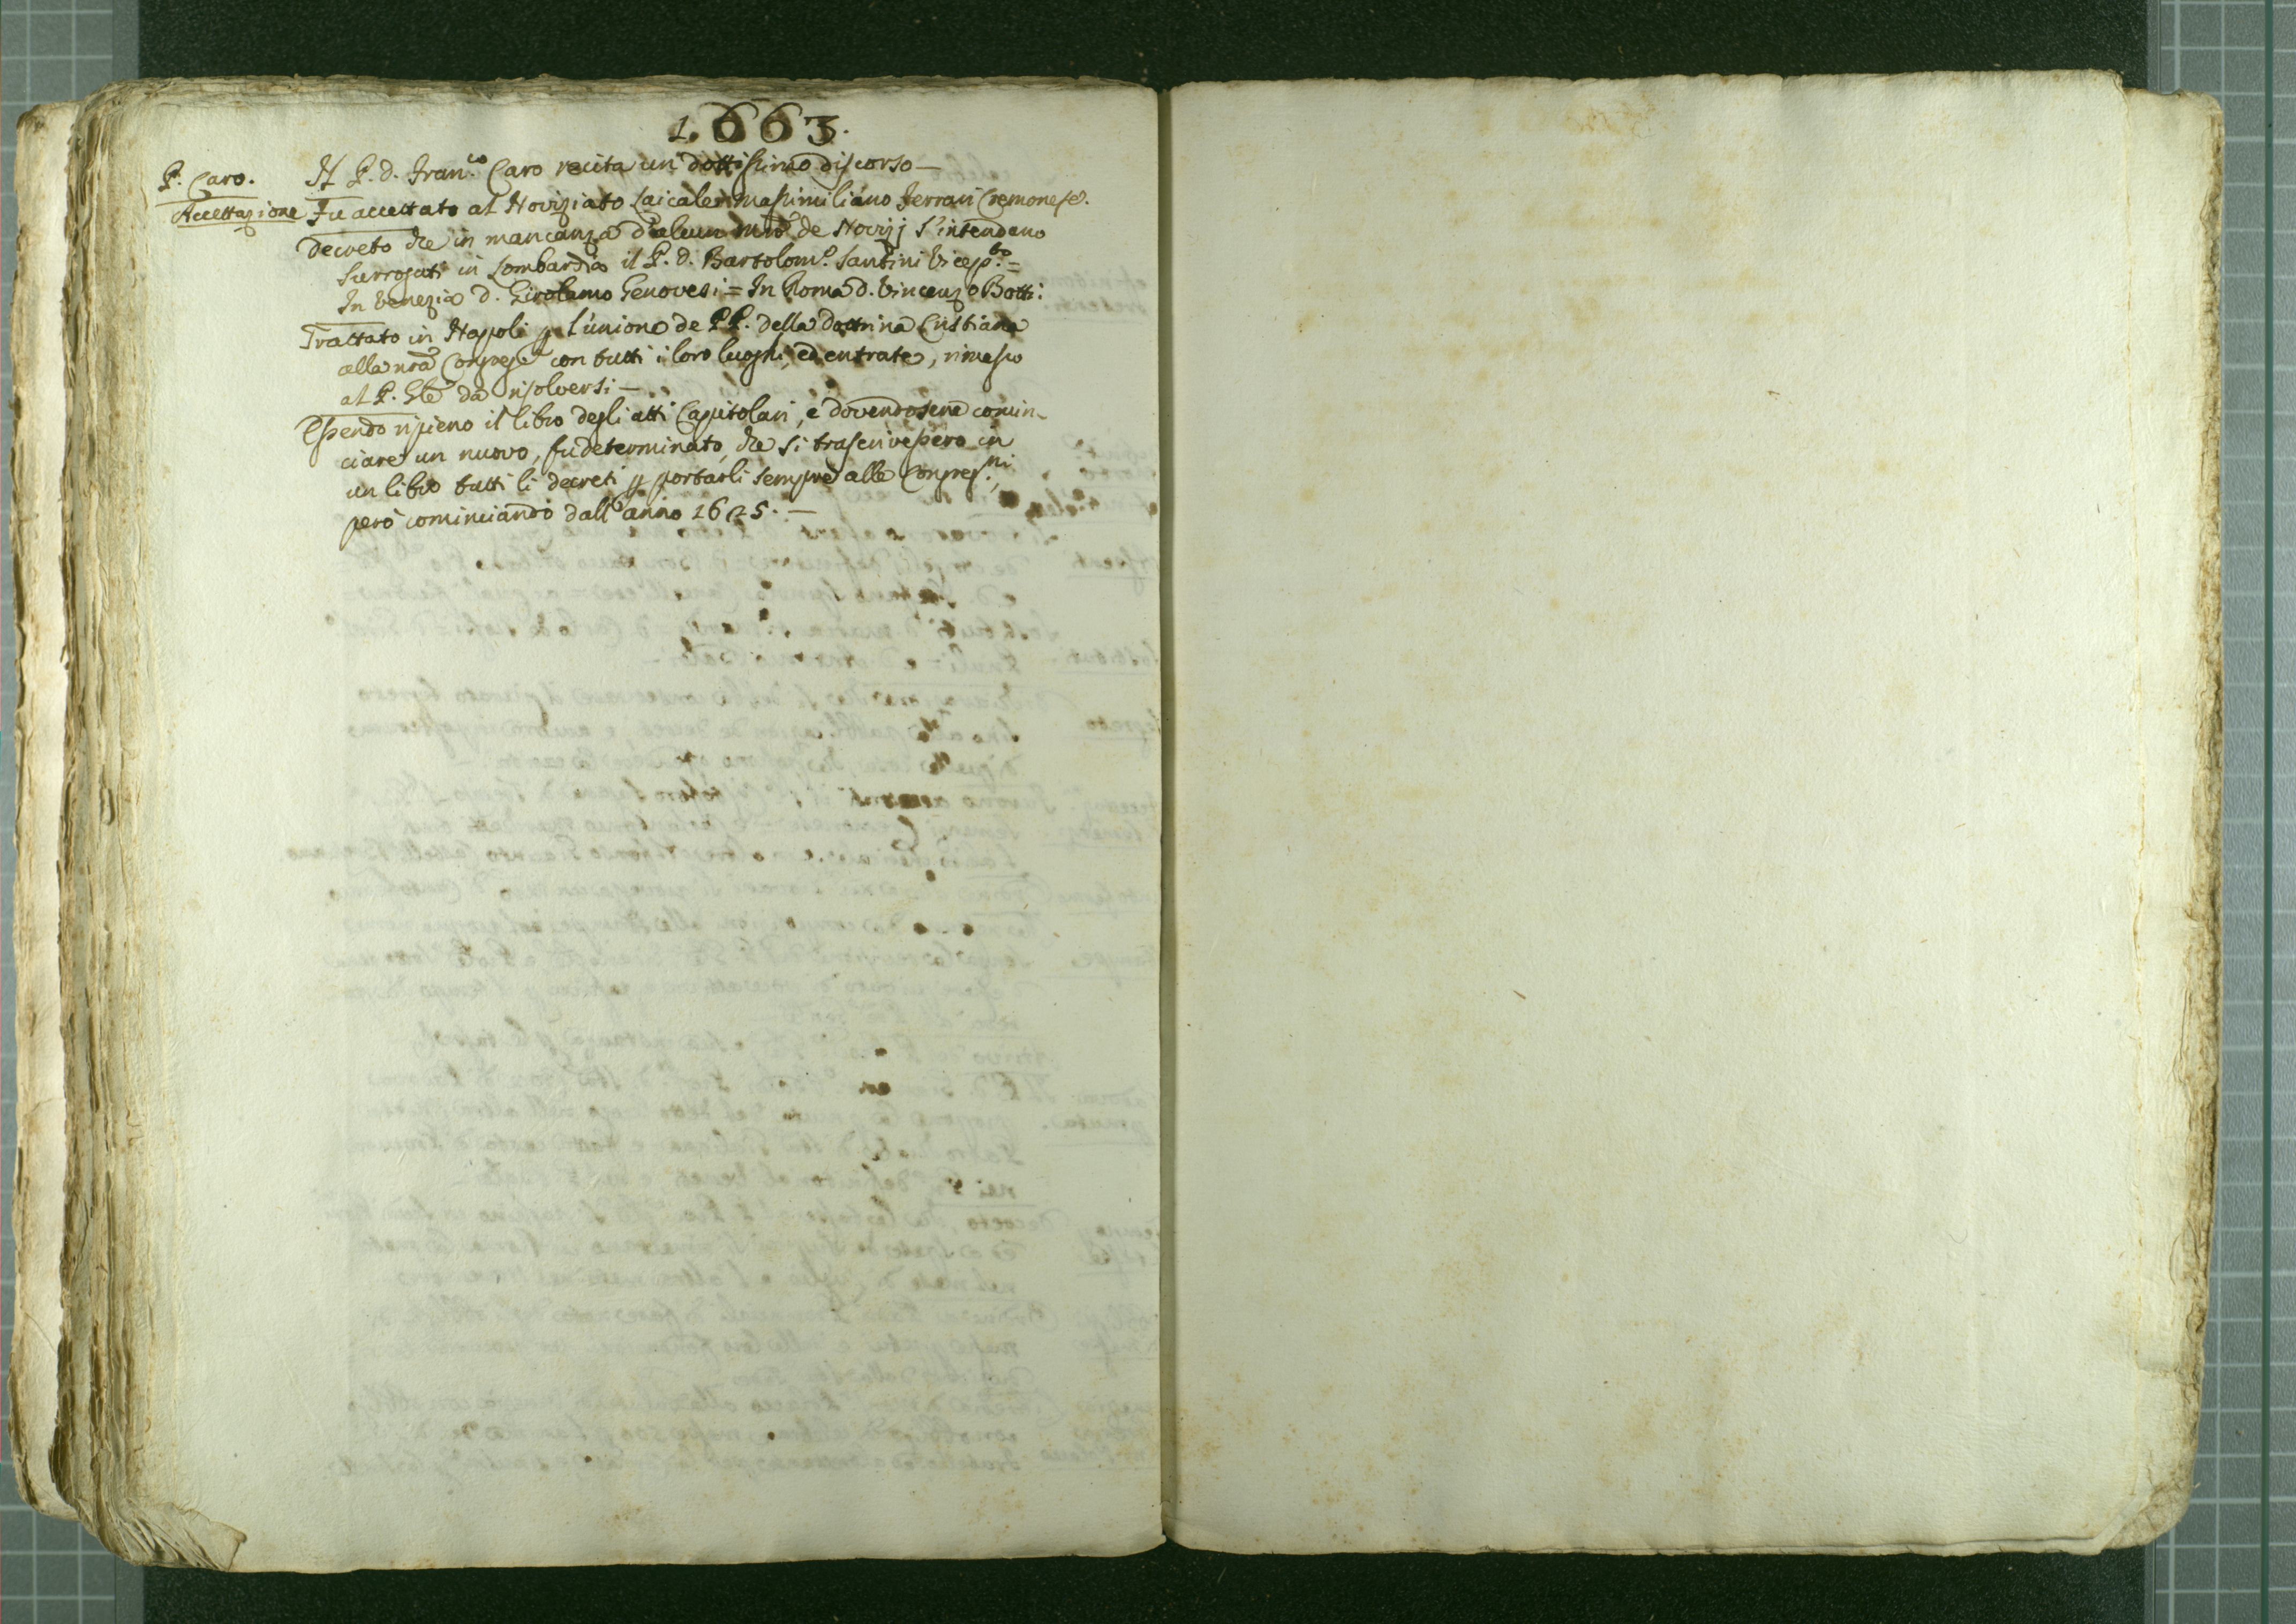 1.663.
P. Caro.
Il P. d. Fran.co Caro recita un dottissimo discorso —
Accettazione
Fu accettato al Noviziato Laicale Massimiliano Ferrari Cremonese.
Decreto che in mancanza d'alcun Mro de Novizj s'intendano
surrogati in Lombardia il P. d. Bartolom.o Santini Vicep.to =
In Venezia d. Girolamo Genovesi = In Roma d. Vincenzo Botti:
Trattato in Napoli p l'unione de PP. della dottrina Cristiana
alla nrã Congreg.e con tutti i loro luoghi, ed entrate, rimesso
al P. Gle da risolversi —
Essendo ripieno il libro degli atti Capitolari, e dovendosene comin-
ciare un nuovo, fu determinato, che si trascrivessero in
un libro tutti li decreti p portarli sempre alle Congreg.ni,
però cominciando dall'anno 1625. —